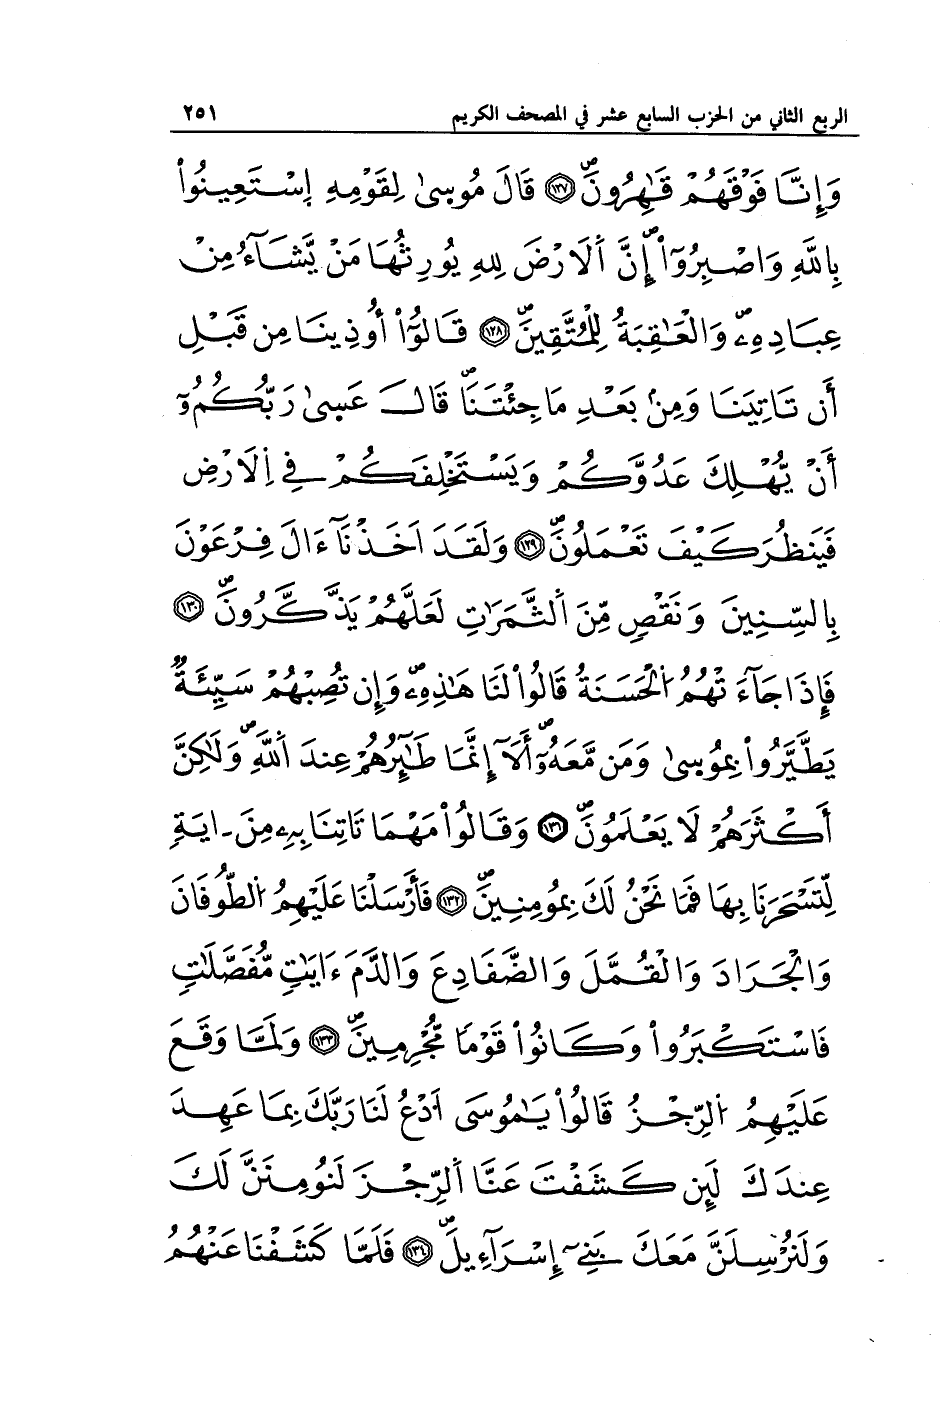 الربع الثاني من الحزب السابع عشر في المصحف الكريم ٢٥١
وَإِنَّا فَوْقَهُمْ قَٰهِرُونَۖ ١٢٧ قَالَ مُوسىٰ لِقَوْمِهِ اِسْتَعِينُواْ
بِاللَّهِ وَاصْبِرُوٓاْۖ إِنَّ اَلَارْضَ لِلهِ يُورِثُهَا مَنْ يَّشَآءُ مِنْ
عِبَادِهِۦۖ وَالْعَٰقِبَةُ لِلْمُتَّقِينَۖ ١٢٨ قَالُوٓاْ أُوذِينَا مِن قَبْلِ
أَن تَاتِيَنَا وَمِنۢ بَعْدِ مَا جِئْتَنَاۖ قَالَ عَسىٰ رَبُّكُمُۥٓ
أَنْ يُّهْلِكَ عَدُوَّكُمْ وَيَسْتَخْلِفَكُمْ فِي اِلَارْضِ
فَيَنظُرَ كَيْفَ تَعْمَلُونَۖ ١٢٩ وَلَقَدَ اَخَذْنَآ ءَالَ فِرْعَوْنَ
بِالسِّنِينَ وَنَقْصٍ مِّنَ اَلثَّمَرَٰتِ لَعَلَّهُمْ يَذَّكَّرُونَۖ ١٣٠
فَإِذَا جَآءَ تْهُمُ اُلْحَسَنَةُ قَالُواْ لَنَا هَٰذِهِۦۖ وَإِن تُصِبْهُمْ سَيِّئَةٌ
يَطَّيَّرُواْ بِمُوسىٰ وَمَن مَّعَهُۥٓۖ أَلَآ إِنَّمَا طَٰٓئِرُهُمْ عِندَ اَللَّهِۖ وَلَٰكِنَّ
أَكْثَرَهُمْ لَا يَعْلَمُونَۖ ١٣١ وَقَالُواْ مَهْمَا تَاتِنَا بِهِۦ مِنَ ـ ايَةٍ
لِّتَسْحَرَنَا بِهَا فَمَا نَحْنُ لَكَ بِمُومِنِينَۖ ١٣٢ فَأَرْسَلْنَا عَلَيْهِمُ اُلطُّوفَانَ
وَالْجَرَادَ وَالْقُمَّلَ وَالضَّفَادِعَ وَالدَّمَ ءَايَٰتٍ مُّفَصَّلَٰتٍ
فَاسْتَكْبَرُواْ وَكَانُواْ قَوْمًا مُّجْرِمِينَۖ ١٣٣ وَلَمَّا وَقَعَ
عَلَيْهِمُ اُلرِّجْزُ قَالُواْ يَٰمُوسَى اَدْعُ لَنَا رَبَّكَ بِمَا عَهِدَ
عِندَكَ لَئِن كَشَفْتَ عَنَّا اَلرِّجْزَ لَنُومِنَنَّ لَكَ
وَلَنُرْسِلَنَّ مَعَكَ بَنِيٓ إِسْرَآءِيلَۖ ١٣٤ فَلَمَّا كَشَفْنَا عَنْهُمُ